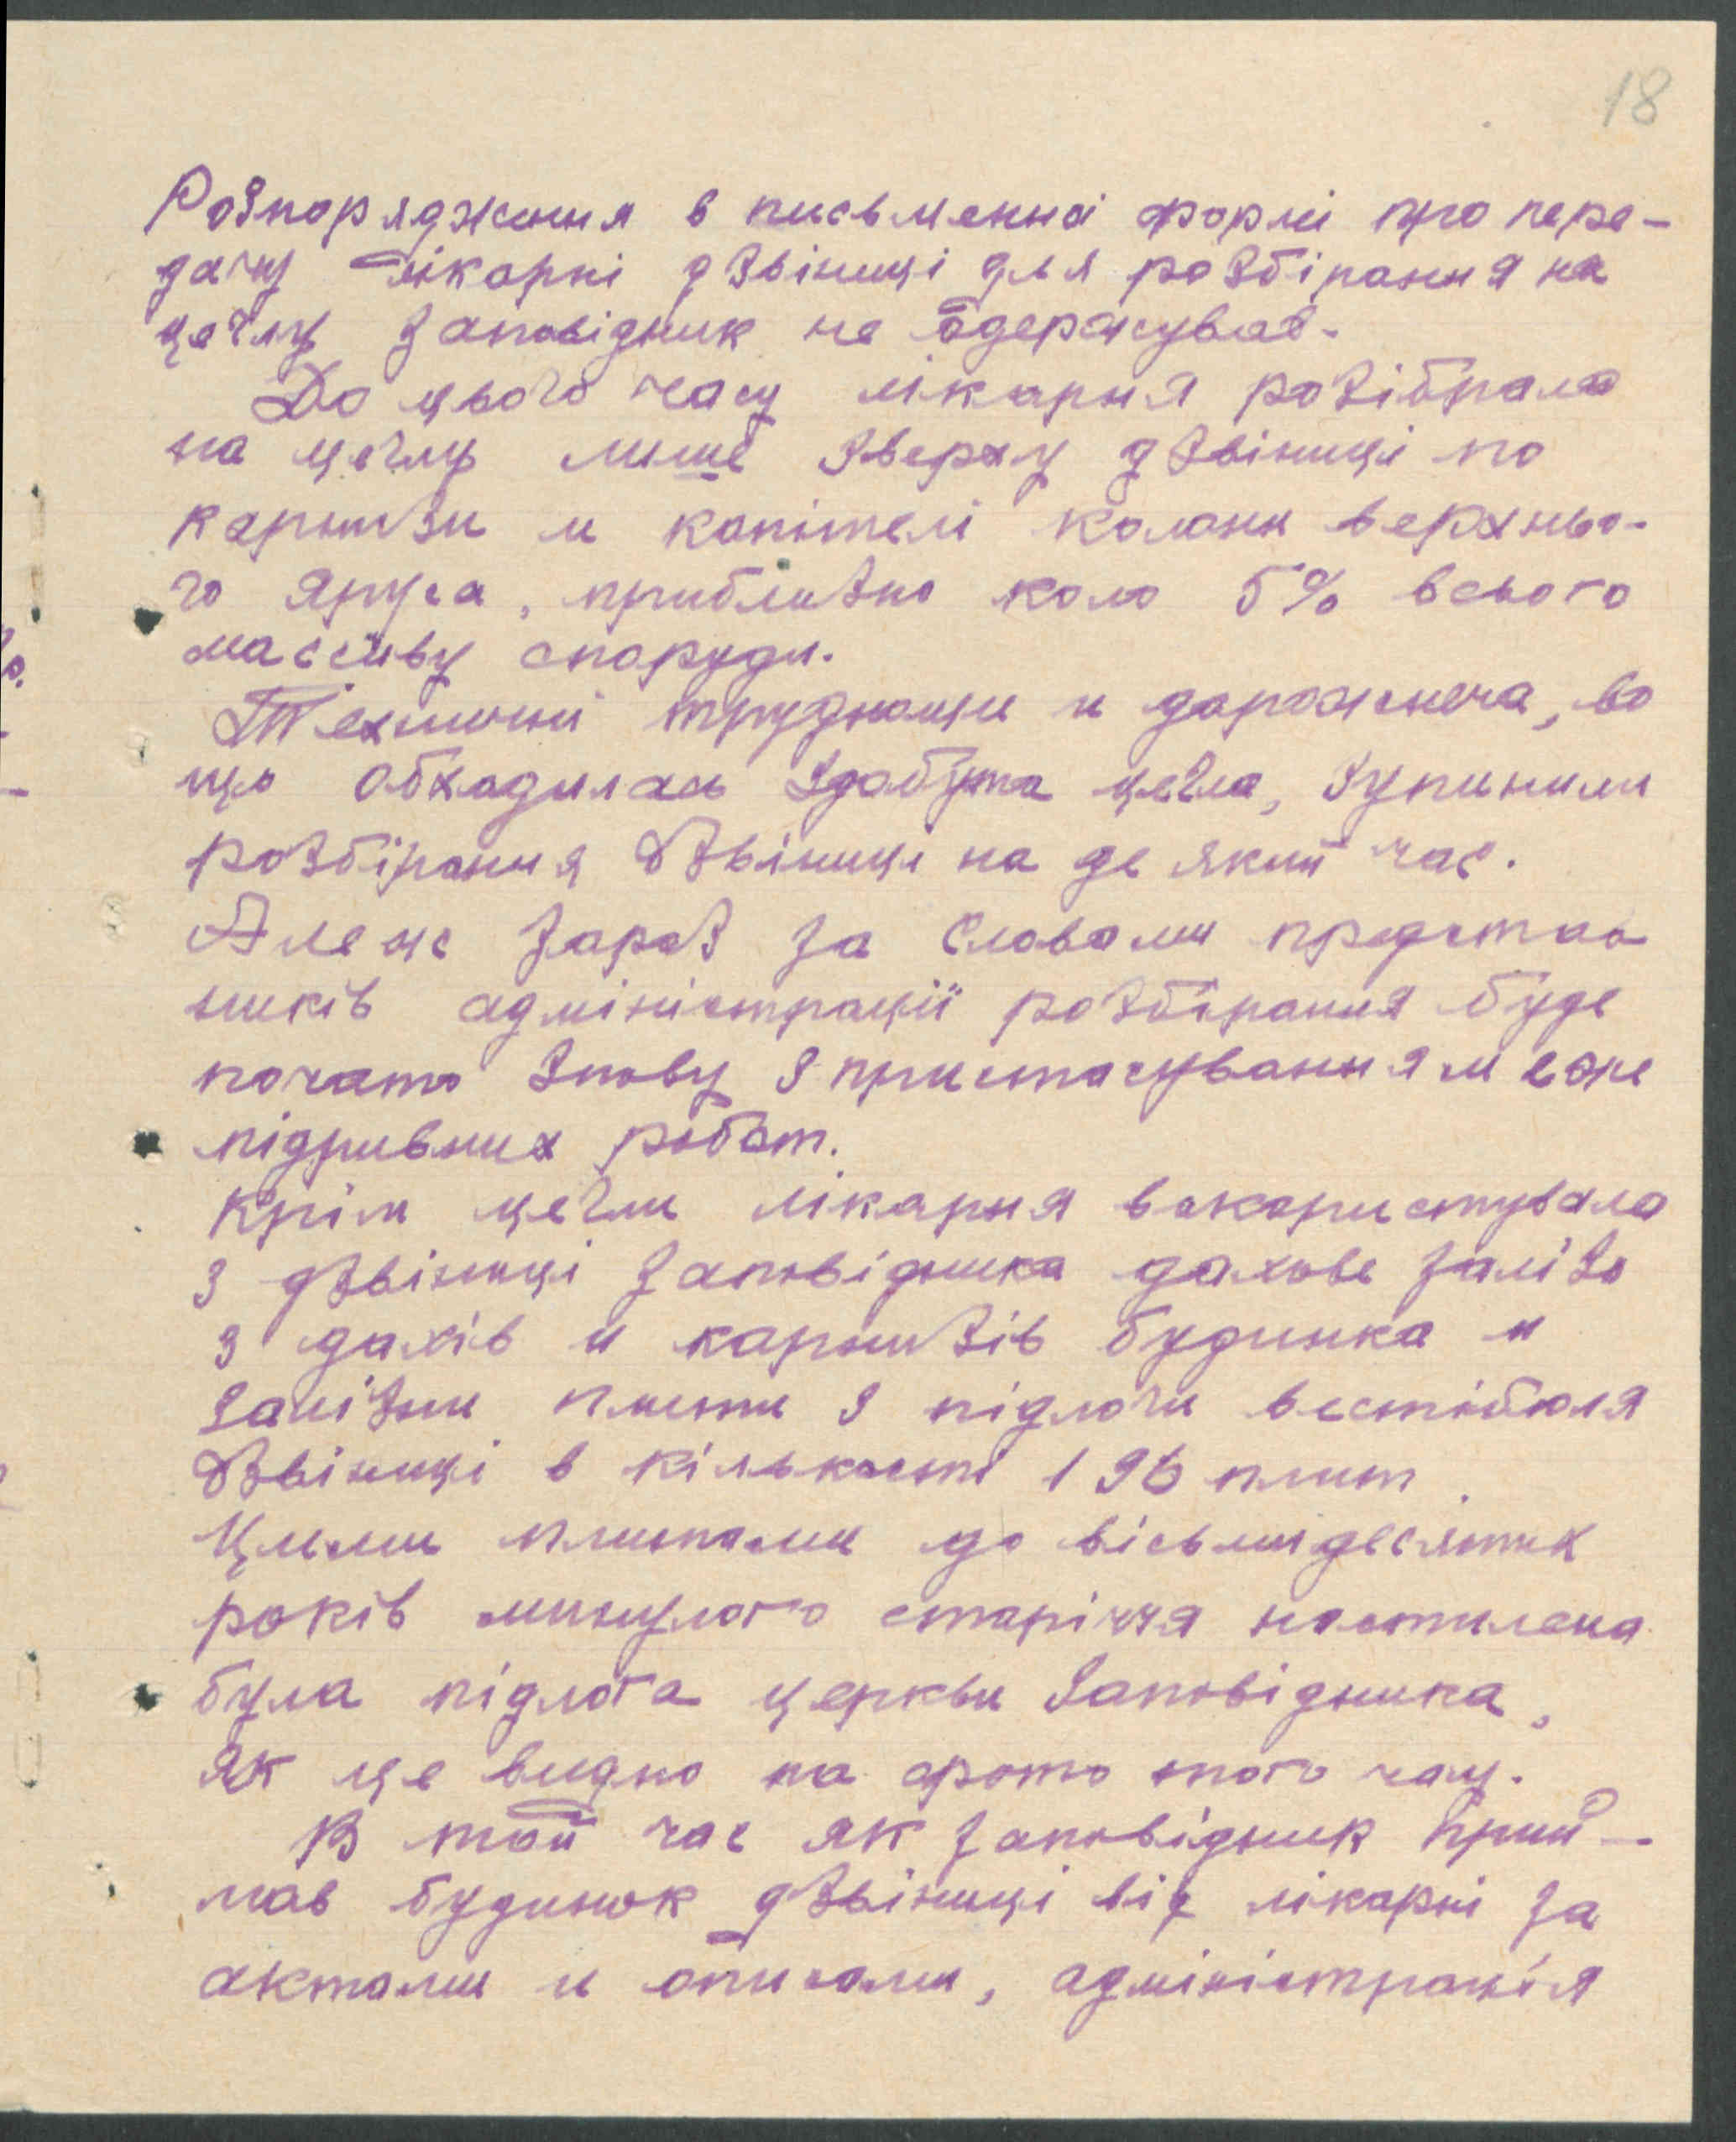 18
Розпорядження в письменні формі про пере-
дачу лікарні дзвіниці для розбірання на
цеглу Заповідник не одержував.
До цього часу лікарня розібрала
на цеглу лише зверху дзвіниці по
карнизи и капітелі колони верхньо-
го яруса, приблизно коло 5% всього
массиву споруди.
Технични труднощи и дорожнеча, во
що обходилась здобута цегла, зупинили
розбірання дзвіниці на де який час.
Але же зараз за словами представ
ників адміністрації розбірання буде
почато знову з пристасуванням вже
підривних робот.
Крім цегли лікарня вокористувала
з дзвіниці Заповідника дахове залізо
з дахів и карнизів будинка и
залізни плити з підлоги вестібюля
дзвіниці в кількості 196 плит.
Цими плитами до вісьмидесятих
років минулого старіччя настилена
була підлога церкви Заповідника,
як це видно на фото того часу.
В той час як Заповідник прий-
мав будинок дзвіниці від лікарні за
актами и описами, адміністрація